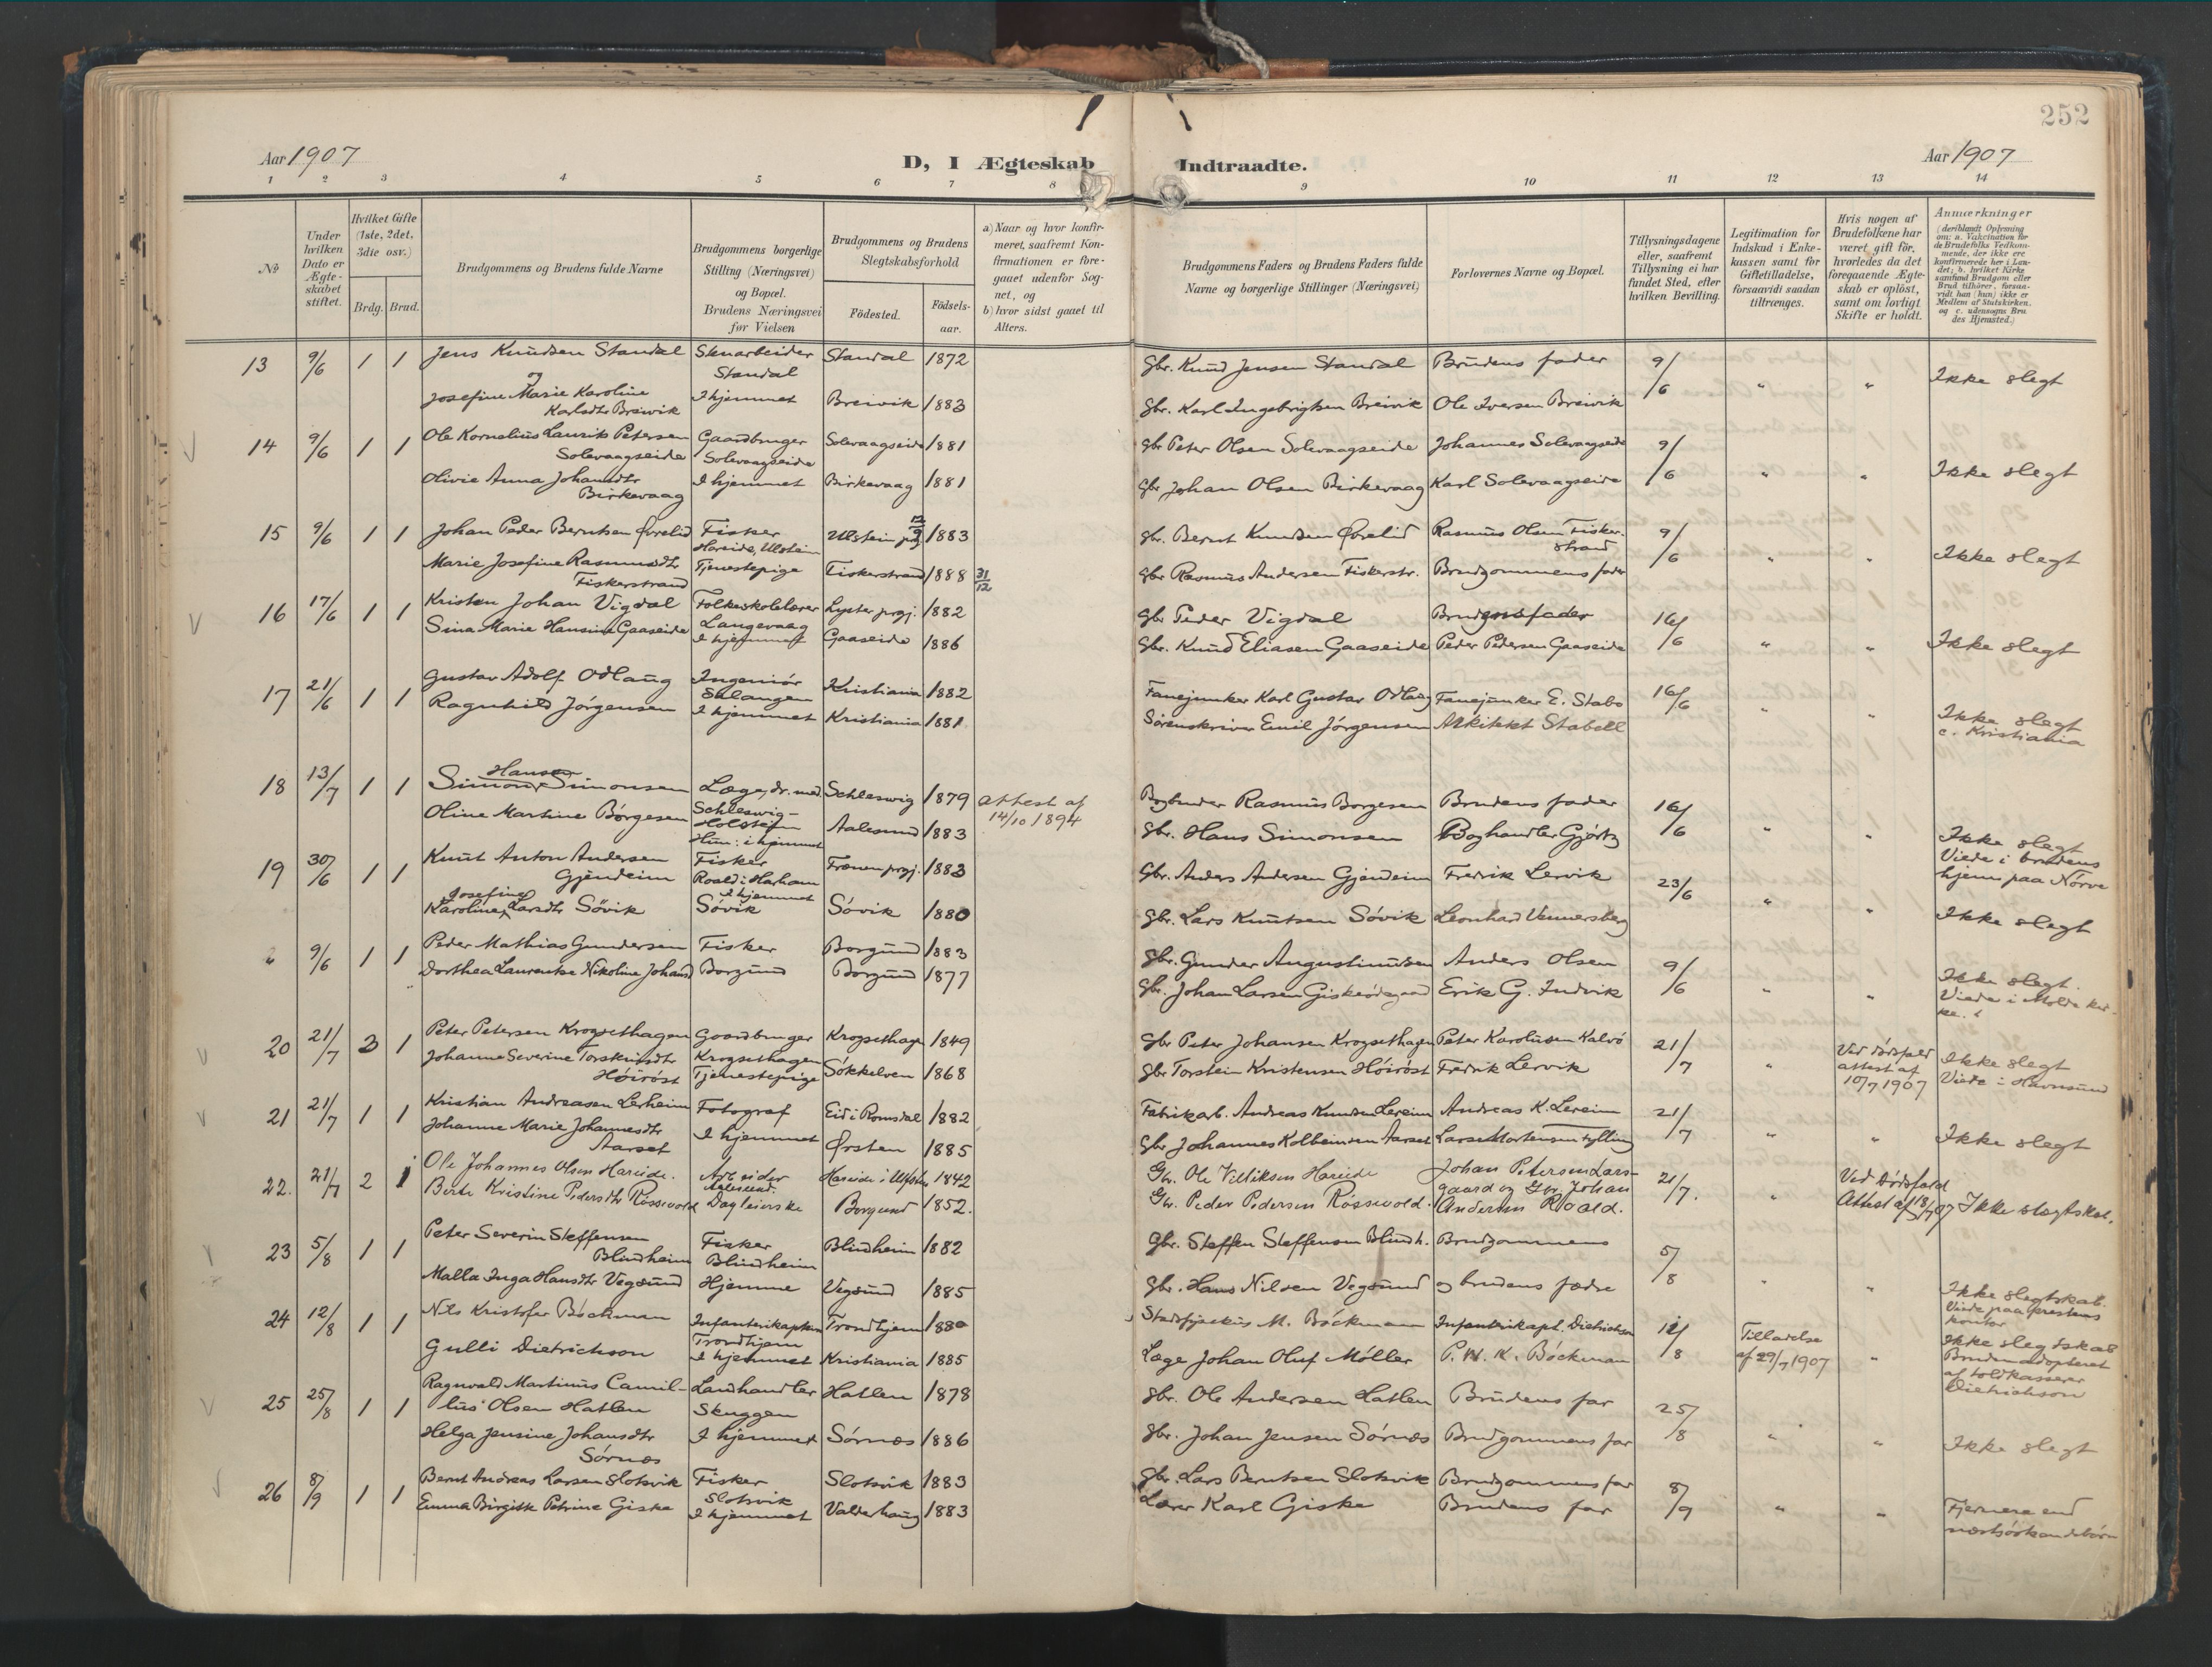 252
Aar 1907
D, I Ægteskab Indtraadte.
Aar 1907
1 2 3 4 5 6 7 8 9 10 11 12 13 14
№
Under hvilken Dato er Ægteskabet stiftet.
Hvilket Gifte (1ste, 2det, 3die osv.)
Brdg. Brud.
Brudgommens og Brudens fulde Navne
Brudgommens borgerlige Stilling (Næringsvei) og Bopæl. Brudens Næringsvei før Vielsen
Brudgommens og Brudens Slegtskabsforhold
Födested.
Födsels-aar.
a) Naar og hvor konfirmeret, saafremt Konfirmationen er foregaaet udenfor Sognet, og
b) hvor sidst gaaet til Alters.
Brudgommens Faders og Brudens Faders fulde Navne og borgerlige Stillinger (Næringsvei)
Forlovernes Navne og Bopæl.
Tillysningsdagene eller, saafremt Tillysning ei har fundet Sted, efter hvilken Bevilling.
Legitimation for Indskud i Enkekassen samt for Giftetilladelse, forsaavidt saadan tiltrænges.
Hvis nogen af Brudefolkene har været gift för, hvorledes da det foregaaende Ægteskab er oplöst, samt om lovligt Skifte er holdt.
Anmærkninger (deriblandt Oplysning om: a. Vakcination for de Brudefolks Vedkommende, der ikke ere konfirmerede her i Landet; b. hvilket Kirkesamfund Brudgom eller Brud tilhörer, forsaavidt han (hun) ikke er Medlem af Statskirken. og c. udensogns Brudes Hjemsted.)
13 9/6 1 1 Jens Knudsen Standal Stenarbeider Standal 1872 Gbr. Knud Jensen Standal Brudens fader 9/6 " " Ikke slegt
og Standal
Josefine Marie Karoline I hjemmet Breivik 1883 Gbr. Karl Ingebrigtsen Breivik Ole Iversen Breivik
Karlsdtr Breivik
14 9/6 1 1 Ole Kornelius Laurits Petersen Gaardbruger Solevaagseide 1881 Gbr Peter Olsen Solevaagseide Johannes Solevaagseide 9/6 " " Ikke slegt
Solevaagseide Solevaagseide
Olivie Anna Johansdtr I hjemmet Birkevaag 1881 Gbr Johan Olsen Birkevaag Karl Solevaagseide
Birkevaag
15 9/6 1 1 Johan Peder Berntsen Øvrelid Fisker Ulstein prgj 1883 Gbr. Bernt Knudsen Øvrelid Rasmus Olsen Fiskerstrand 9/6 " " Ikke slegt
Hareide, Ulstein
Marie Josefine Rasmusdtr Tjenestepige Fiskerstrand 1888 31/12 Gbr Rasmus Andersen Fiskerstr. Brudgommens fader
Fiskerstrand
16 17/6 1 1 Kristen Johan Vigdal Folkeskolelærer Lyster prgj. 1882 Gbr Peder Vigdal 16/6 " " Ikke slegt
Langevaag
Sina Marie Hansine Gaaseide I hjemmet Gaaseide 1886 Gbr. Knud Eliasen Gaaseide Peder Pedersen Gaaseide
17 21/6 1 1 Gustav Adolf Odlaug Ingeniør Kristiania 1882 Fanejunker Karl Gustav Odlaug Fanejunker E. Stabo 16/6 " " Ikke slegt
Salangen
Ragnhild Jörgensen I hjemmet Kristiania 1881 Sorenskriver Emil Jörgensen Arkitekt Stabell c. Kristiania
18 13/7 1 1 Simon Hansen Simonsen Læge, dr. med. Schleswig 1879 Attest af Bogbinder Rasmus Borgesen Brudens fader 16/6 " " Ikke slegt
Schleswig-Holstein 14/10 1894
Oline Martine Börgesen Hun: i hjemmet Aalesund 1883 Gbr. Hans Simonsen Boghandler Gjörtz Viede i brudens hjem paa Nörve
19 30/6 1 1 Knut Anton Andersen Fisker Frænen prgj. 1883 Gbr. Anders Andersen Gjendeim Fredrik Lervik 23/6 " " Ikke slegt
Gjendeim Roald i Harham
Karoline Josefine Larsdtr Sövik I hjemmet Sövik Sövik 1880 Gbr. Lars Knutsen Sövik Leonhard Vennersberg
" 9/6 1 1 Peder Mathias Gundersen Fisker Borgund 1883 Gbr. Gunder Augustinusen Anders Olsen 9/6 " " Ikke slegt.
Dorthea Laurentse Nikoline Johansd Borgund Borgund 1877 Gbr. Johan Larsen Giskeödegaard Erik G. Indvik Viede i Molde kirke.
20 21/7 3 1 Peter Petersen Krogsethagen Gaardbruger Krogsethagen 1849 Gbr Peter Johansen Krogsethagen Peter Karolusen Kalvö 21/7 " Ved dödsfald attest af 10/7 1907 Ikke slegt
Krogsethagen
Johanne Severine Torsteinsdtr Tjenestepige Sökkelven 1868 Gbr Torstein Kristensen Höiröst Fredrik Lervik Viede i Havnsund
Höiröst
21 21/7 1 1 Kristian Andreasen Lerheim Fotograf Eid i Romsdal 1882 Fabrikarb. Andreas Knudsen Lereim Andreas K. Lereim 21/7 " " Ikke slegt
Johanne Marie Johannesdtr I hjemmet Ørsten 1885 Gbr Johannes Kolbeinsen Aarset Lars Mortensen Fylling
Aarset
22. 21/7 2 1 Ole Johannes Olsen Hareide. Arbeider Hareide i Ulfsten 1842 Gbr. Ole Hareide Johan Petersen Larsgaard og Gbr. Johan 21/7. " Ved Dødsfald Attest af 18/7 07 Ikke slægtskab.
Aalesund.
Berte Kristine Pedersdtr Røssevold Dagleierske Borgund 1852. Gbr. Peder Pedersen Røssevold. Andersen Roald.
23 5/8 1 1 Peter Severin Steffensen Fisker Blindheim 1882 Gbr. Steffen Steffensen Blindh. Brudgommens 5/8 " " Ikke slegtskab.
Blindheim Blindheim
Malla Inga Hansdtr Vegsund Hjemme Vegsund 1885 Gbr. Hans Nilsen Vegsund og brudens fædre Viede paa prestens kontor
24 12/8 1 1 Nils Kristofer Böckman Infanterikaptein Trondhjem 1880 Stadsfysikus M. Böckmann Infanterikapt. Dietrichson 12/8 Tilladelse af 29/7 1907 " Ikke slegtskab
Trondhjem
Gulli Dietrichson I hjemmet Kristiania 1885 Læge Johan Oluf Möller P. W. K. Böckman Bruden adopteret af toldkasserer Dietrichson
25 25/8 1 1 Ragnvald Martinus Camillus Olsen Hatlen Landhandler Hatlen 1878 Gbr. Ole Andersen Hatlen Brudens far 25/8 " " Ikke slegt
Skuggen
Helga Jensine Johansdtr I hjemmet Sörnes 1886 Gbr. Johan Jensen Sörnes Brudgommens far
Sörnes
26 8/9 1 1 Bernt Andreas Larsen Slotsvik Fisker Slotsvik 1883 Gbr Lars Berntsen Slotsvik Brudgommens far 8/9 " " Fjernere end næstsöskendebörn
Slotsvik
Emma Birgitte Petrine Giske I hjemmet Valderhaug 1883 Lærer Karl Giske Brudens far